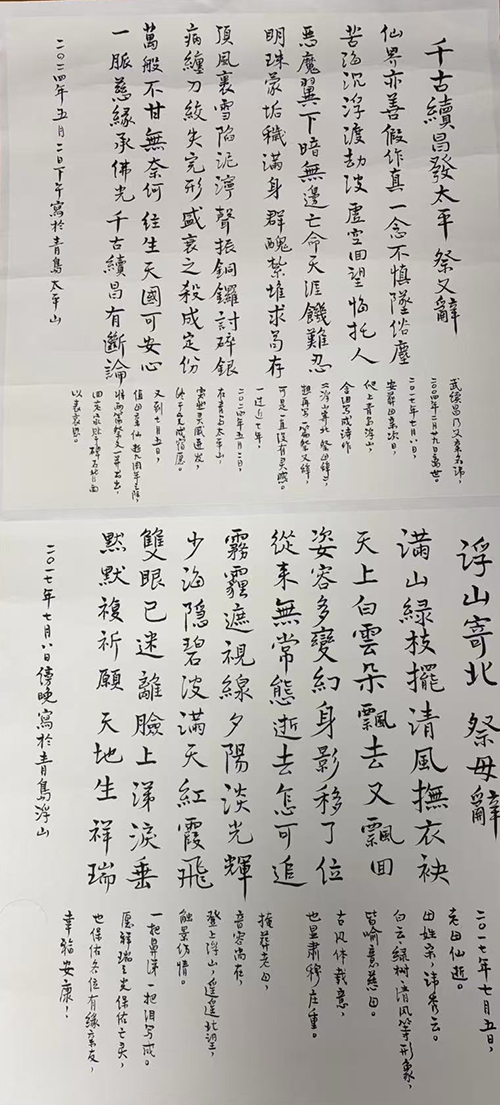 千古續昌發太平 祭父辭
仙界亦善假作真 一念不慎墜俗塵
苦海沉浮渡劫波 虛空回望惦托人
惡魔翼下暗無邊 亡命天涯饑難忍
明珠蒙垢穢滿身 群醜禁堆求苟存
頂風裹雪陷泥濘 聲振銅鑼討碎銀
病纏刀絞失完形 盛衰之殺成定份
萬般不甘無奈何 往生天國可安心
一脈慈緣承佛光 千古續昌有斷論
二〇二四年五月二日下午寫於青島太平山
武續昌乃父亲名讳，
二〇〇四年三月十九日离世。
二〇一七年七月八日，
安葬母亲次日，
爬上青岛浮山，
含泪写成诗作
《浮山寄北 祭母辞》，
想再写一篇祭父辞，
可是一直没有灵感。
一过近七年，
二〇二四年五月二日，
在青岛太平山，
突然灵感迸发，
终于完成宿愿。
又到七月五日，
值母亲仙逝七周年之际，
将两篇祭文一并书出，
以表哀思。
浮山寄北 祭母辭
滿山綠枝擺 清風撫衣袂
天上白雲朵 飄去又飄回
姿容多變幻 身影移了位
從來無常態 逝去怎可追
霧霾遮視線 夕陽淡光輝
少海隐碧波 滿天紅霞飛
雙眼已迷離 臉上涕淚垂
默默複祈願 天地生祥瑞
二〇一七年七月八日傍晚寫於青島浮山
二〇一七年七月五日，
老母仙逝。
田姓宗，讳秀云。
白云绿树清风等形象，
皆喻意慈母。
古风体裁意，
也显肃穆庄重。
掩葬老母，
音容尚在，
登上浮山遥遥北望，
触景伤情。
一把鼻涕一把泪写成。
愿祥瑞之光保佑亡灵，
也保佑各位有缘亲友，
幸福安康！